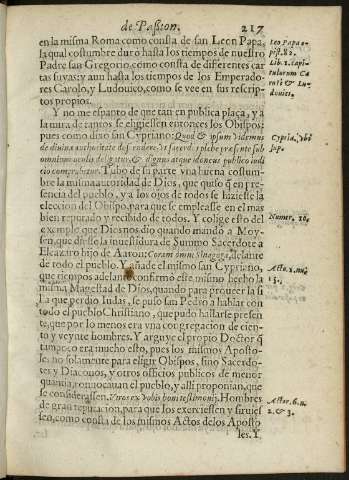 de Passion. 217
en la misma Roma como consta de san Leon Papa,
la qual costumbre duro hasta los tiempos de nuestro
Padre san Gregorio, como consta de diferentes car
tas suyas: y aun hasta los tiempos de los Emperado-
res Carolo, y Ludouico, como se vee en sus rescrip-
tos propios.
Y no me espanto de que tan en publica plaça, y a
la mira de tantos se eligiessen entonces los Obispos:
pues como dixo san Cypriano: Quod & ipsum videmus
de diuina authoritate descendere, vt sacerdos plebe præsente sub
omnium oculis deligatur, & dignus atque idoneus publico iudi
cio comprobetur. Tuuo de su parte vna buena costum-
bre la misma autoridad de Dios, que quiso q̃ en pre-
sencia del pueblo, y a los ojos de todos se hiziesse la
eleccion del Obispo, para que se empleasse en el mas
bien reputado y recibido de todos. Y colige esto del
exemplo que Dios nos dio quando mandò a Moy-
sen, que diesse la inuestidura de Summo Sacerdote a
Eleazaro hijo de Aaron: Coram omni Synagoga, delante
de todo el pueblo. Y añade el mismo san Cypriano,
que tiempos adelante confirmò este mismo hecho la
misma Magestad de Dios, quando para proueer la si
lla que perdio Iudas, se puso san Pedro a hablar con
todo el pueblo Christiano, que pudo hallarse presen
te, que por lo menos era vna congregacion de cien-
to y veynte hombres. Y arguye el propio Doctor q̃
tampoco era mucho esto, pues los mismos Aposto-
les no solamente para eligir Obispos, sino Sacerdo-
tes y Diaconos, y otros officios publicos de menor
quantia, conuocauan el pueblo, y alli proponian, que
se considerassen. Viros ex vobis boni testimonij. Hombres
de gran reputacion, para que los exerciessen y siruies
sen, como consta de los mismos Actos delos Aposto
les. Y
Leo Papa e-
pist. 82.
Lib. 1. capi-
tulorum Ca
roli & Lu-
douici.
Cypria. vbi
sup.
Numer. 20.
Acto. 1. nu.
13.
Actor. 6. n.
2. & 3.